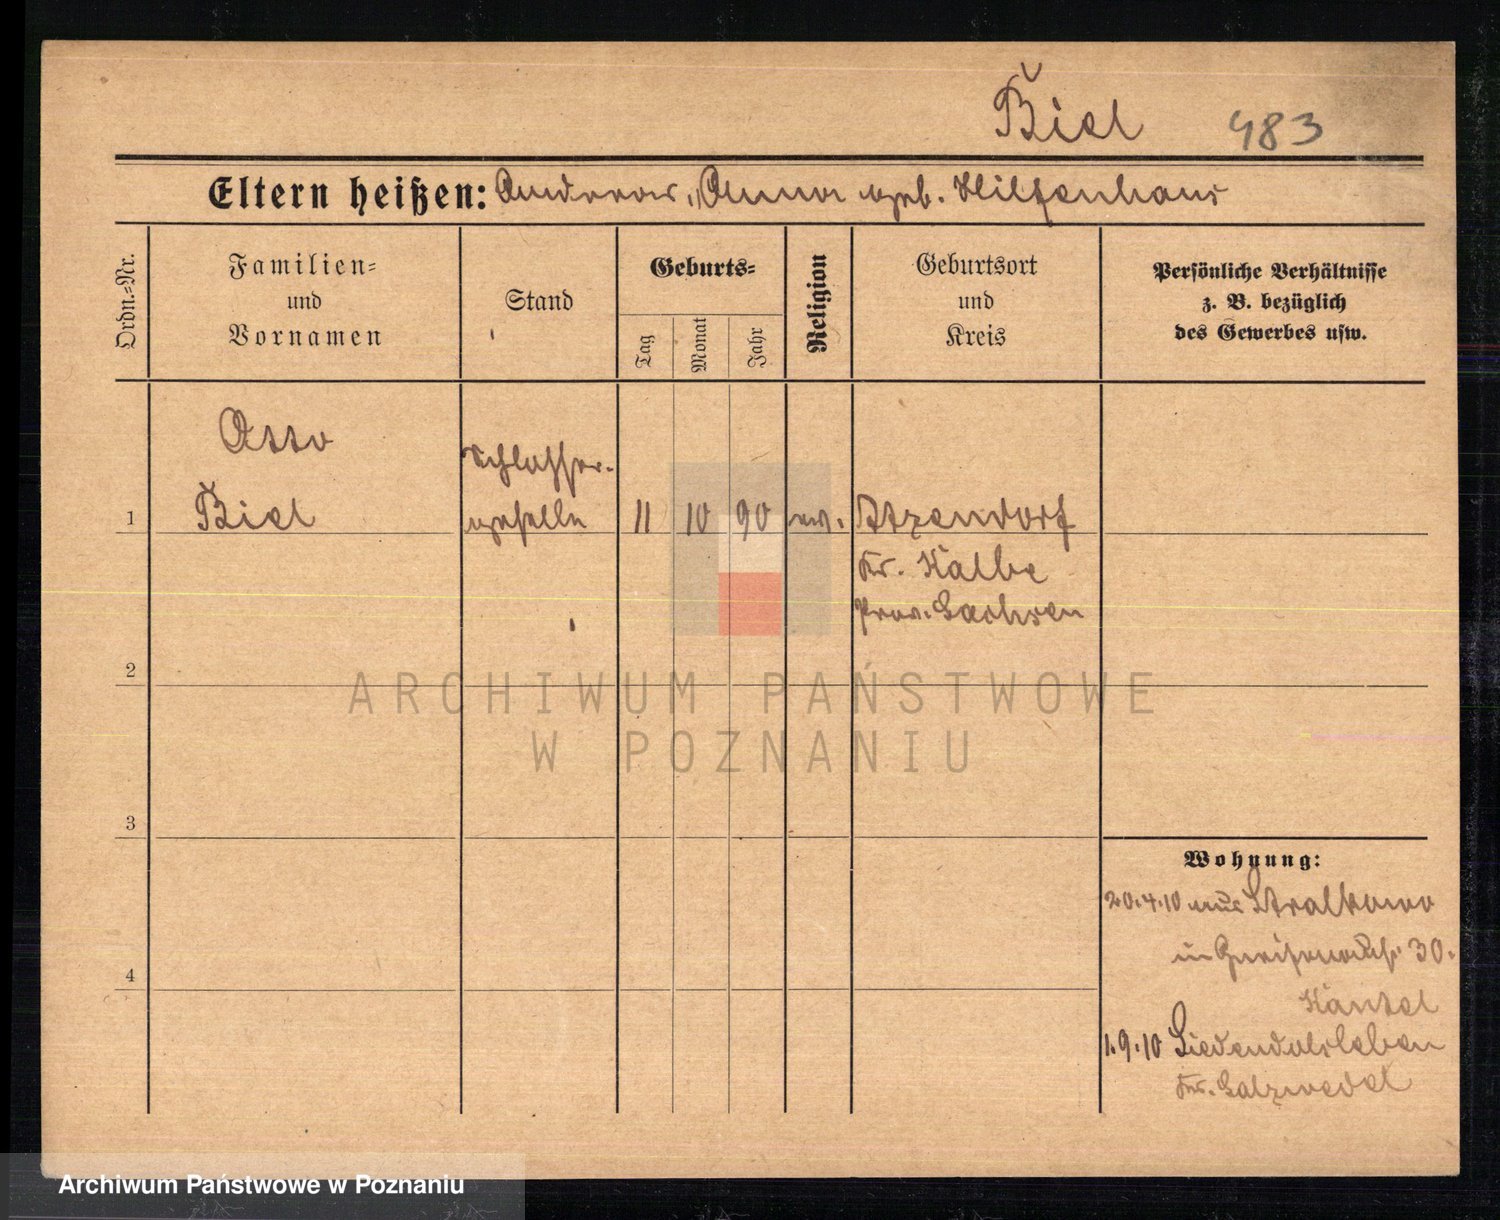 Biel 483
Eltern heißen: Andreas, Anna geb. Hilfenhaus
Ordn.-Nr.
Familien-
und
Vornamen
Stand
Geburts-
Tag
Monat
Jahr
Religion
Geburtsort
und
Kreis
Persönliche Verhältnisse
z. B. bezüglich
des Gewerbes usw.
Otto
Schlosser-
1 Biel geselle 11 10 90 ev. Atzendorf
Kr. Kalbe
Prov. Sachsen
2
ARCHIWUM PAŃSTWOWE
W POZNANIU
3
Wohnung:
20.4.10 aus Stralkowo
in 30.
4
1.9.10
Kr. Salzwedel
Archiwum Państwowe w Poznaniu